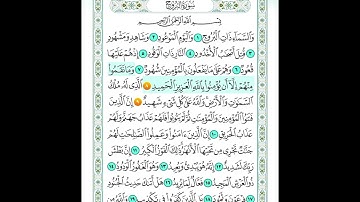 سُورَةُ البُرُوجِ
بِسْمِ اللَّهِ الرَّحْمَٰنِ الرَّحِيمِ
وَالسَّمَاءِ ذَاتِ الْبُرُوجِ ١ وَالْيَوْمِ الْمَوْعُودِ ٢ وَشَاهِدٍ وَمَشْهُودٍ
٣ قُتِلَ أَصْحَٰبُ الْأُخْدُودِ ٤ النَّارِ ذَاتِ الْوَقُودِ ٥ إِذْ هُمْ عَلَيْهَا
قُعُودٌ ٦ وَهُمْ عَلَىٰ مَا يَفْعَلُونَ بِالْمُؤْمِنِينَ شُهُودٌ ٧ وَمَا نَقَمُوا
مِنْهُمْ إِلَّا أَن يُؤْمِنُوا بِاللَّهِ الْعَزِيزِ الْحَمِيدِ ٨ الَّذِي لَهُ مُلْكُ
السَّمَٰوَٰتِ وَالْأَرْضِ وَاللَّهُ عَلَىٰ كُلِّ شَيْءٍ شَهِيدٌ ٩ إِنَّ الَّذِينَ
فَتَنُوا الْمُؤْمِنِينَ وَالْمُؤْمِنَٰتِ ثُمَّ لَمْ يَتُوبُوا فَلَهُمْ عَذَابُ جَهَنَّمَ وَلَهُمْ
عَذَابُ الْحَرِيقِ ١٠ إِنَّ الَّذِينَ ءَامَنُوا وَعَمِلُوا الصَّٰلِحَٰتِ لَهُمْ
جَنَّٰتٌ تَجْرِي مِن تَحْتِهَا الْأَنْهَٰرُ ذَٰلِكَ الْفَوْزُ الْكَبِيرُ ١١ إِنَّ بَطْشَ
رَبِّكَ لَشَدِيدٌ ١٢ إِنَّهُ هُوَ يُبْدِئُ وَيُعِيدُ ١٣ وَهُوَ الْغَفُورُ الْوَدُودُ ١٤
ذُو الْعَرْشِ الْمَجِيدُ ١٥ فَعَّالٌ لِّمَا يُرِيدُ ١٦ هَلْ أَتَىٰكَ حَدِيثُ الْجُنُودِ
١٧ فِرْعَوْنَ وَثَمُودَ ١٨ بَلِ الَّذِينَ كَفَرُوا فِي تَكْذِيبٍ ١٩ وَاللَّهُ مِن